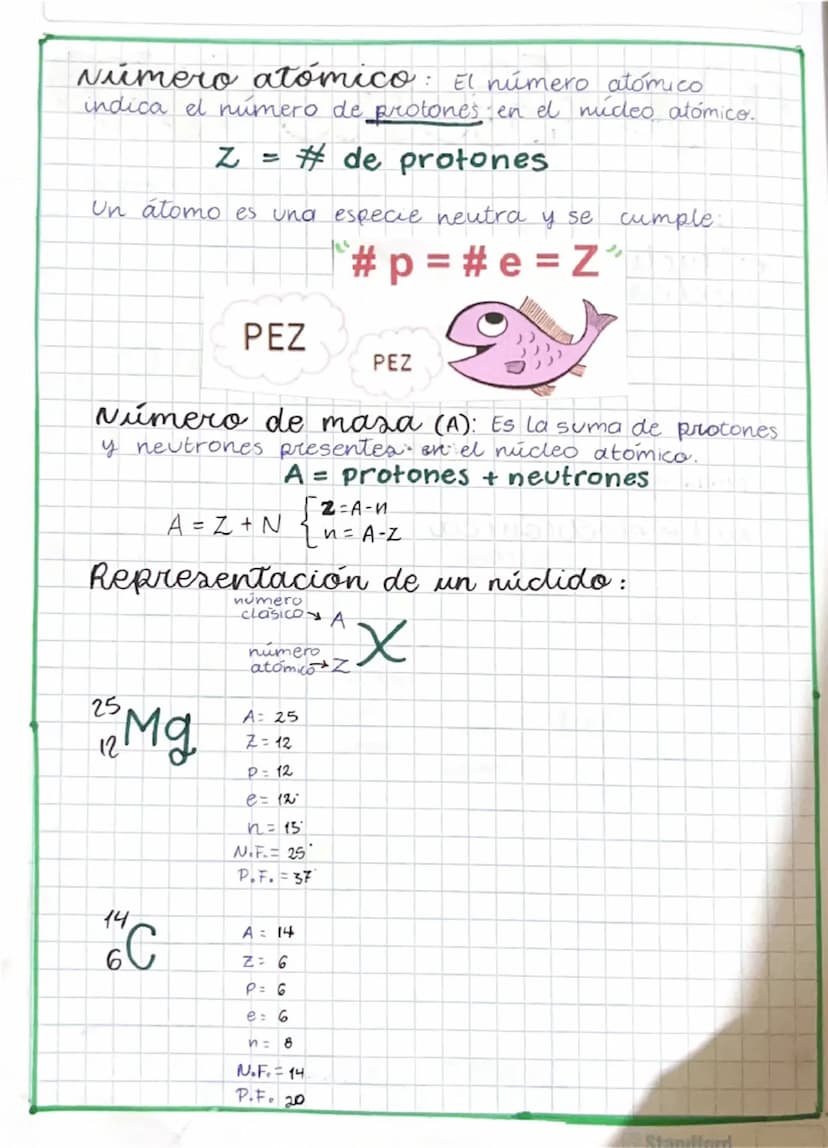 Número atómico: El número atómico
indica el número de protones en el núcleo atómico.
Z = # de protones
Un átomo es una especie neutra y se cumple:
"# p = # e = Z"
PEZ
PEZ
Número de masa (A): Es la suma de protones
y neutrones presentes en el núcleo atómico.
A = protones + neutrones
A = Z + N { Z = A-n
n = A-Z
Representación de un núclido:
número
clásico → A
X
número
atómico → Z
25
12 Mg
A = 25
Z = 12
p = 12
e = 12
n = 13
N.F. = 25
P.F. = 37
14
6 C
A = 14
Z = 6
p = 6
e = 6
n = 8
N.F. = 14
P.F. 20
Standford